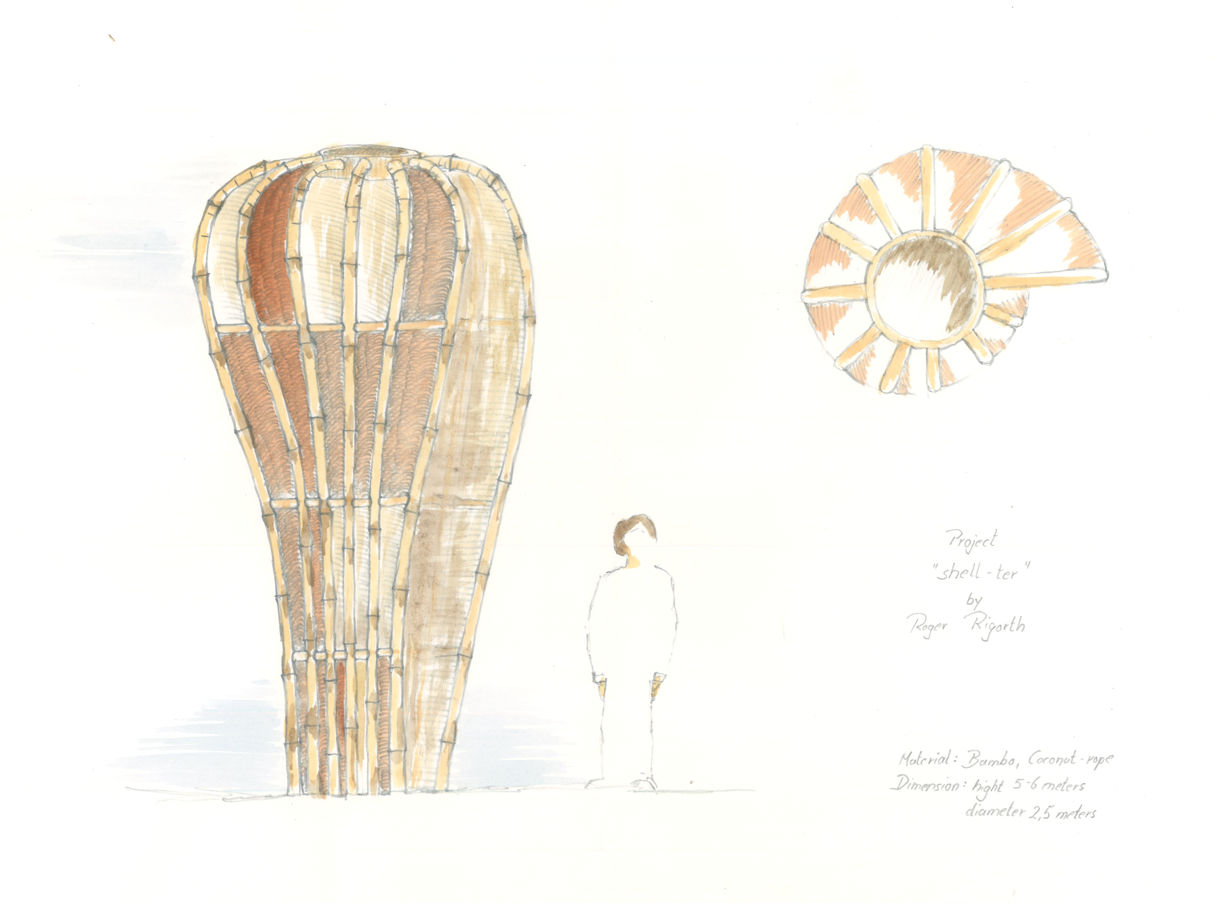 Project
"shell-ter"
by
Roger Rigorth
Material: Bambo, Coconut-rope
Dimension: hight 5-6 meters
diameter 2,5 meters